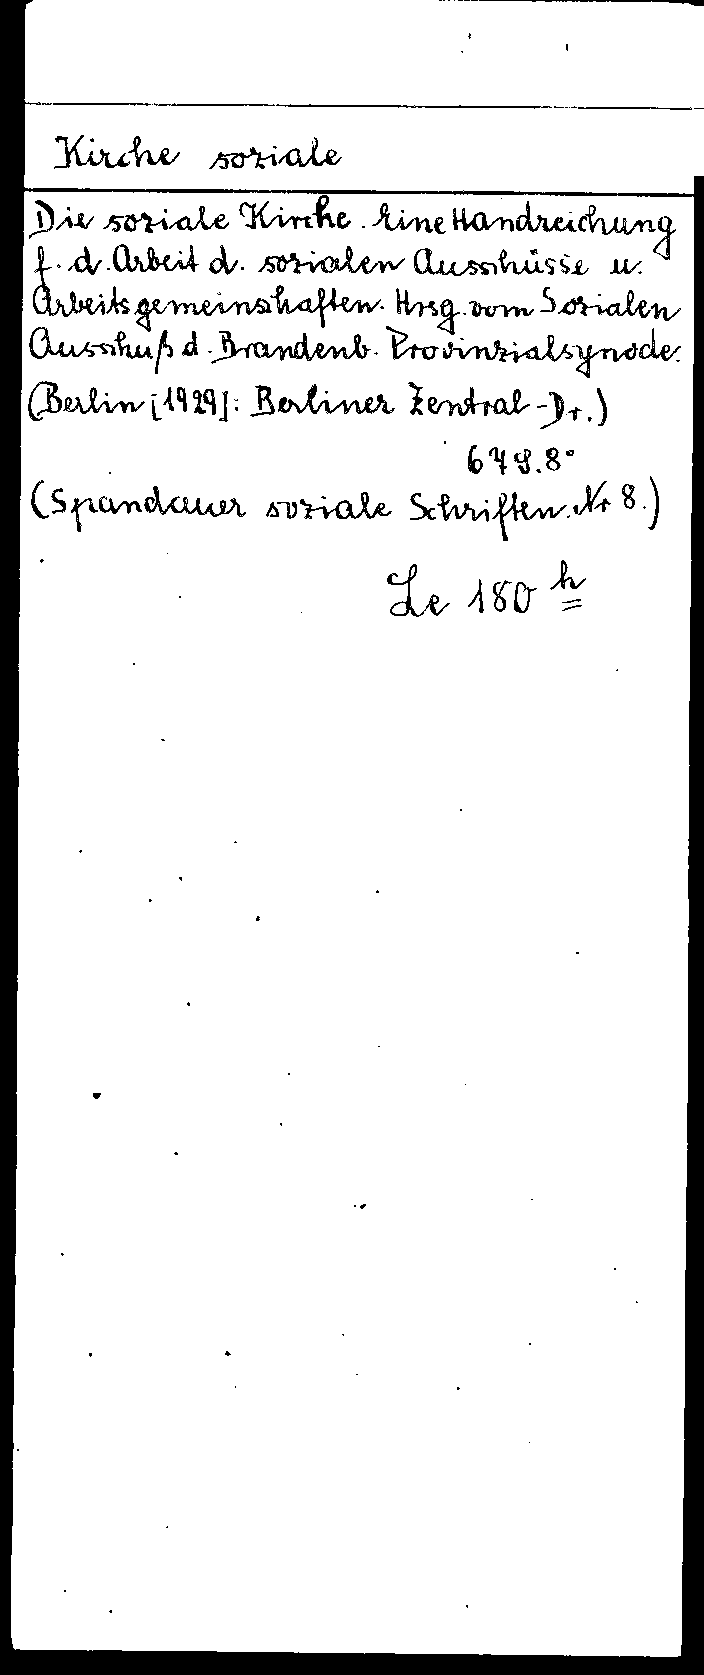 Kirche soziale
Die soziale Kirche. Eine Handreichung
f. d. Arbeit d. sozialen Ausschüsse u.
Arbeitsgemeinschaften. Hrsg. vom Sozialen
Ausschuß d. Brandenb. Provinzialsynode.
(Berlin [1929]: Berliner Zentral-Dr.)
67 S. 8°
(Spandauer soziale Schriften. Nr 8.)
Le 180 h